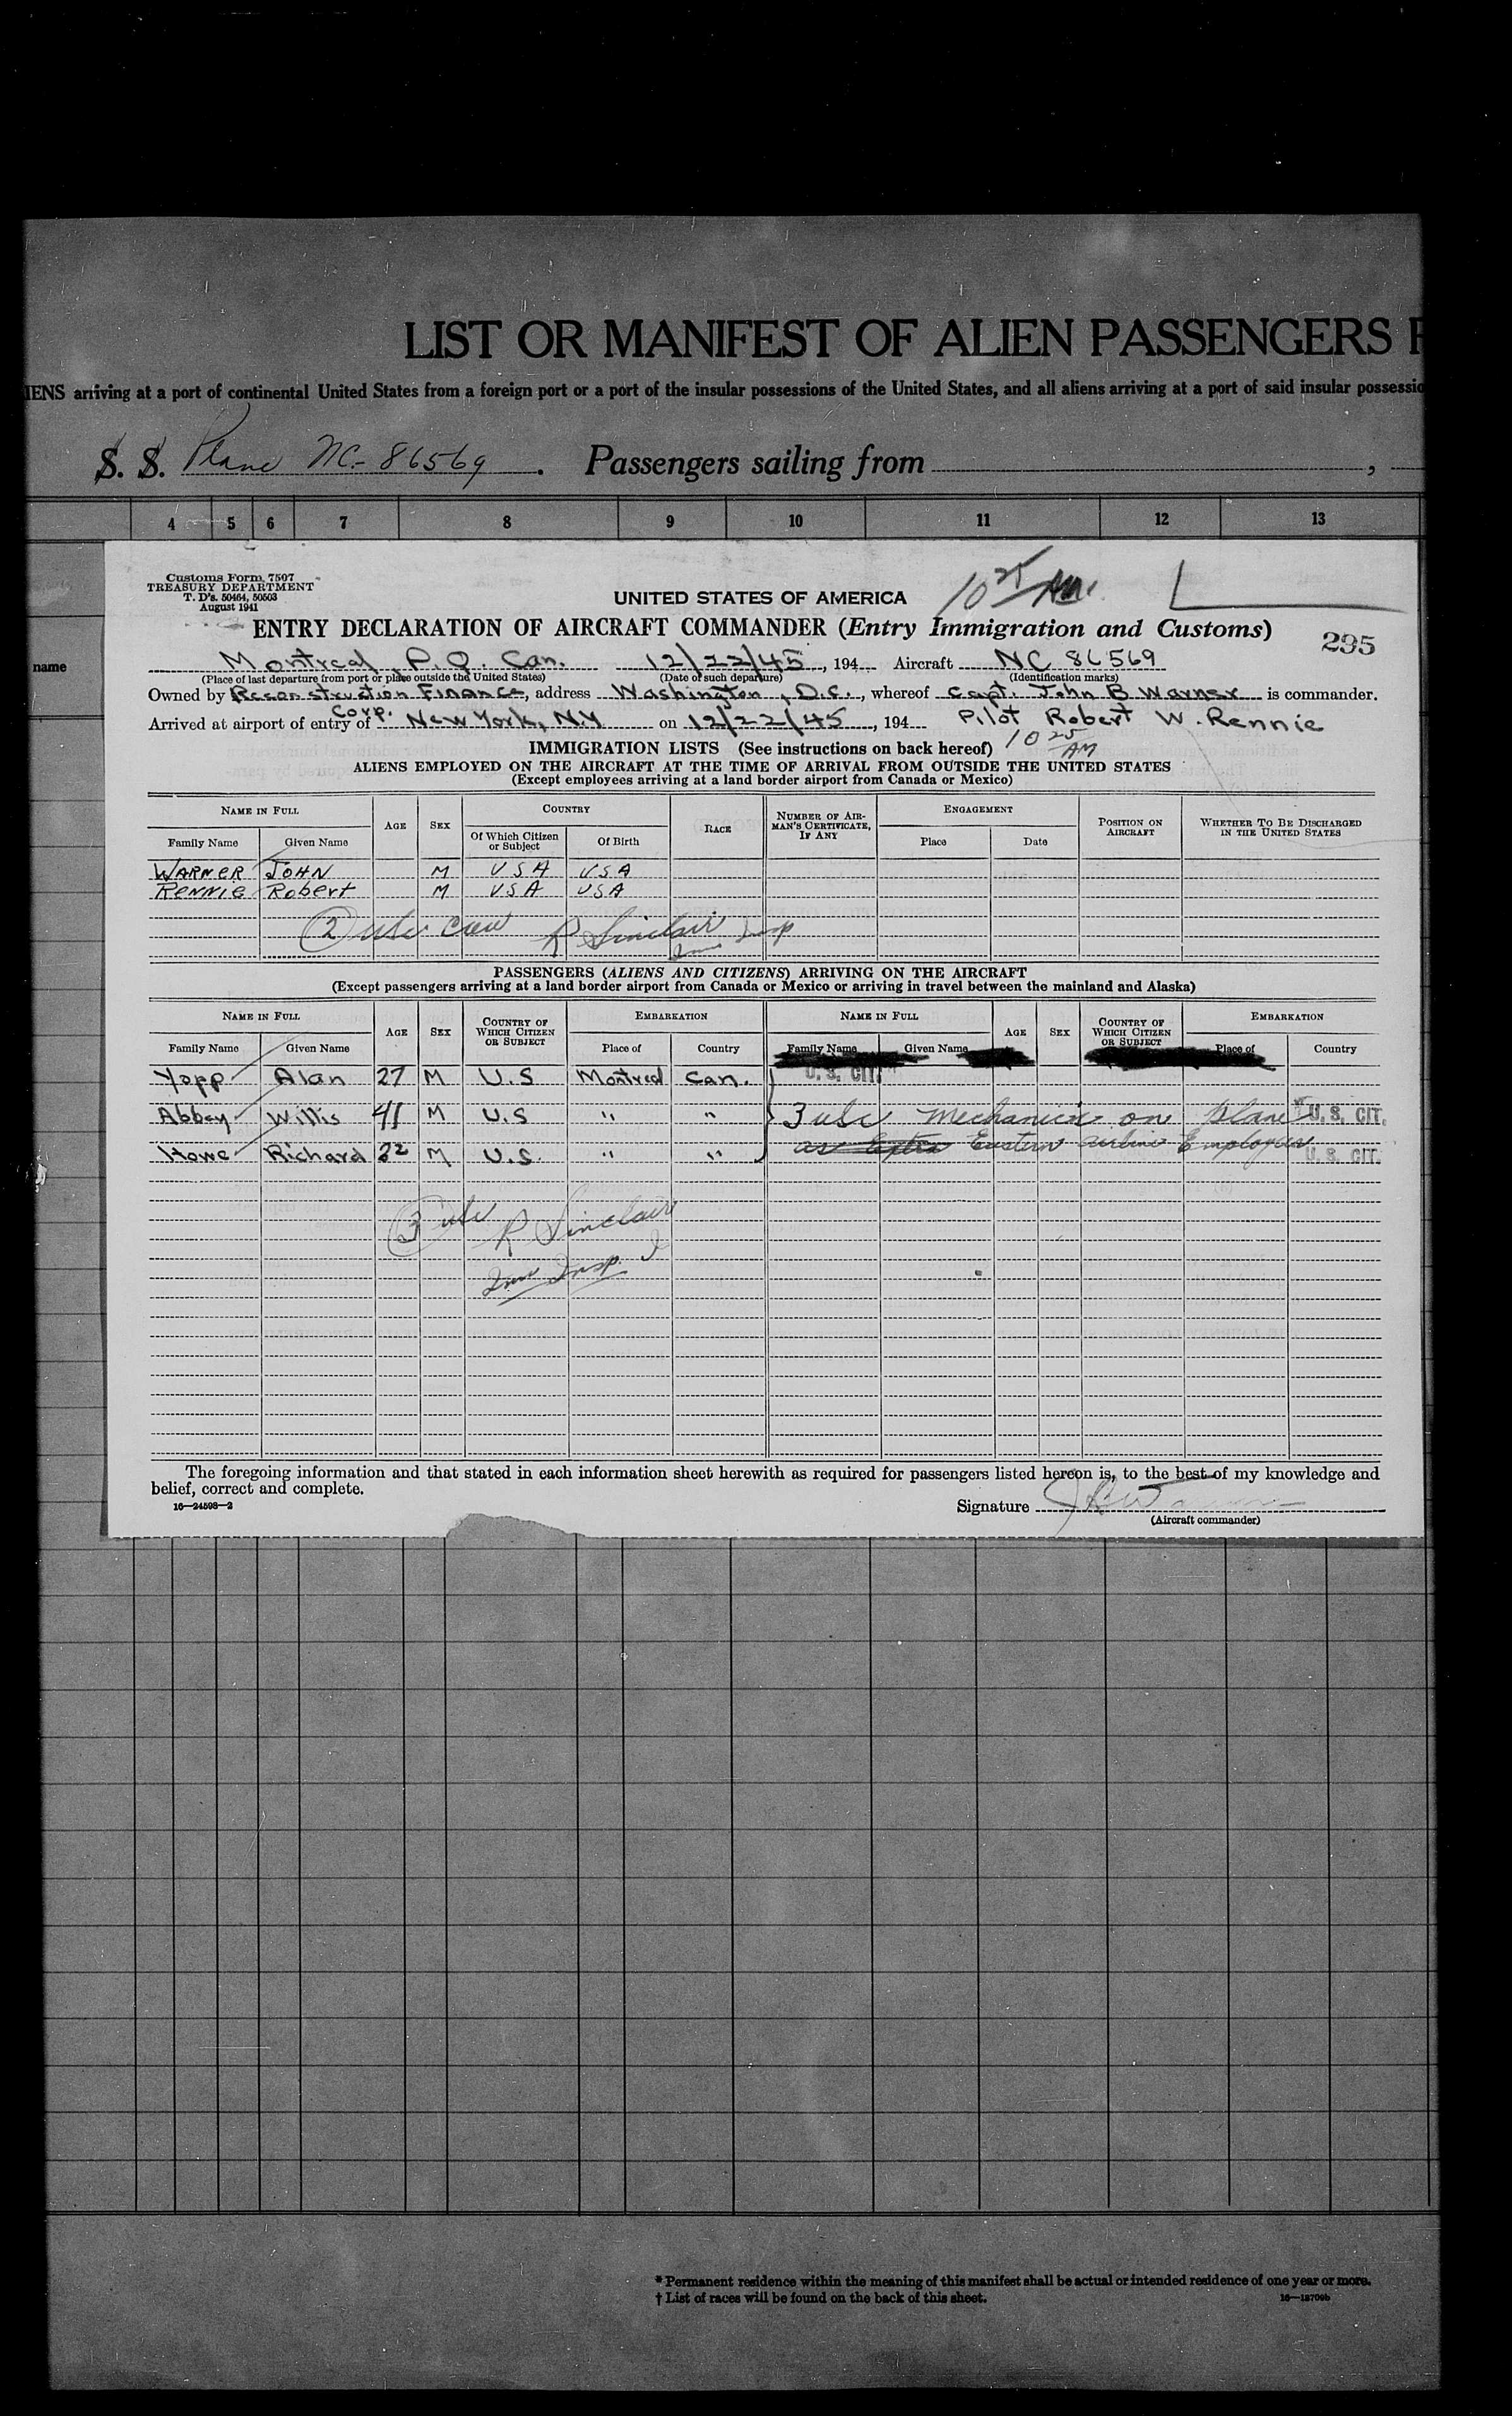 LIST OR MANIFEST OF ALIEN PASSENGERS F
IENS arriving at a port of continental United States from a foreign port or a port of the insular possessions of the United States, and all aliens arriving at a port of said insular possessio
S. S. Plane NC-86569. Passengers sailing from ,
4 5 6 7 8 9 10 11 12 13
name
Customs Form 7507
TREASURY DEPARTMENT
T. D's. 50464, 50503
August 1941
UNITED STATES OF AMERICA
10 25 AM.
ENTRY DECLARATION OF AIRCRAFT COMMANDER (Entry Immigration and Customs)
295
Montreal, P.Q. Can. 12/22/45, 194 Aircraft NC 86569
(Place of last departure from port or place outside the United States) (Date of such departure) (Identification marks)
Owned by Reconstruction Finance, address Washington, D.C., whereof Capt. John B Warner is commander.
Corp.
Arrived at airport of entry of New York, N.Y on 12/22/45, 194 Pilot Robert W. Rennie
IMMIGRATION LISTS (See instructions on back hereof) 10 25 AM
ALIENS EMPLOYED ON THE AIRCRAFT AT THE TIME OF ARRIVAL FROM OUTSIDE THE UNITED STATES
(Except employees arriving at a land border airport from Canada or Mexico)
NAME IN FULL AGE SEX COUNTRY RACE NUMBER OF AIRMAN'S CERTIFICATE, IF ANY ENGAGEMENT POSITION ON AIRCRAFT WHETHER TO BE DISCHARGED IN THE UNITED STATES
Family Name Given Name Of Which Citizen or Subject Of Birth Place Date
WARNER JOHN M USA USA
RENNIE Robert M USA USA
2 usc crew R Sinclair
Imm Insp
PASSENGERS (ALIENS AND CITIZENS) ARRIVING ON THE AIRCRAFT
(Except passengers arriving at a land border airport from Canada or Mexico or arriving in travel between the mainland and Alaska)
NAME IN FULL AGE SEX COUNTRY OF WHICH CITIZEN OR SUBJECT EMBARKATION NAME IN FULL AGE SEX COUNTRY OF WHICH CITIZEN OR SUBJECT EMBARKATION
Family Name Given Name Place of Country Family Name Given Name Place of Country
Yopp Alan 27 M U.S Montreal Can. U. S. CIT.
Abbey Willis 41 M U.S " " 3 usc mechanics on plane U. S. CIT.
Howe Richard 22 M U.S. " " as Extra Eastern Airline Employees U. S. CIT.
3 usc R Sinclair
Imm Insp.
The foregoing information and that stated in each information sheet herewith as required for passengers listed hereon is, to the best of my knowledge and
belief, correct and complete.
16—24598-2
Signature J B Warner
(Aircraft commander)
* Permanent residence within the meaning of this manifest shall be actual or intended residence of one year or more.
† List of races will be found on the back of this sheet.
16—18709b